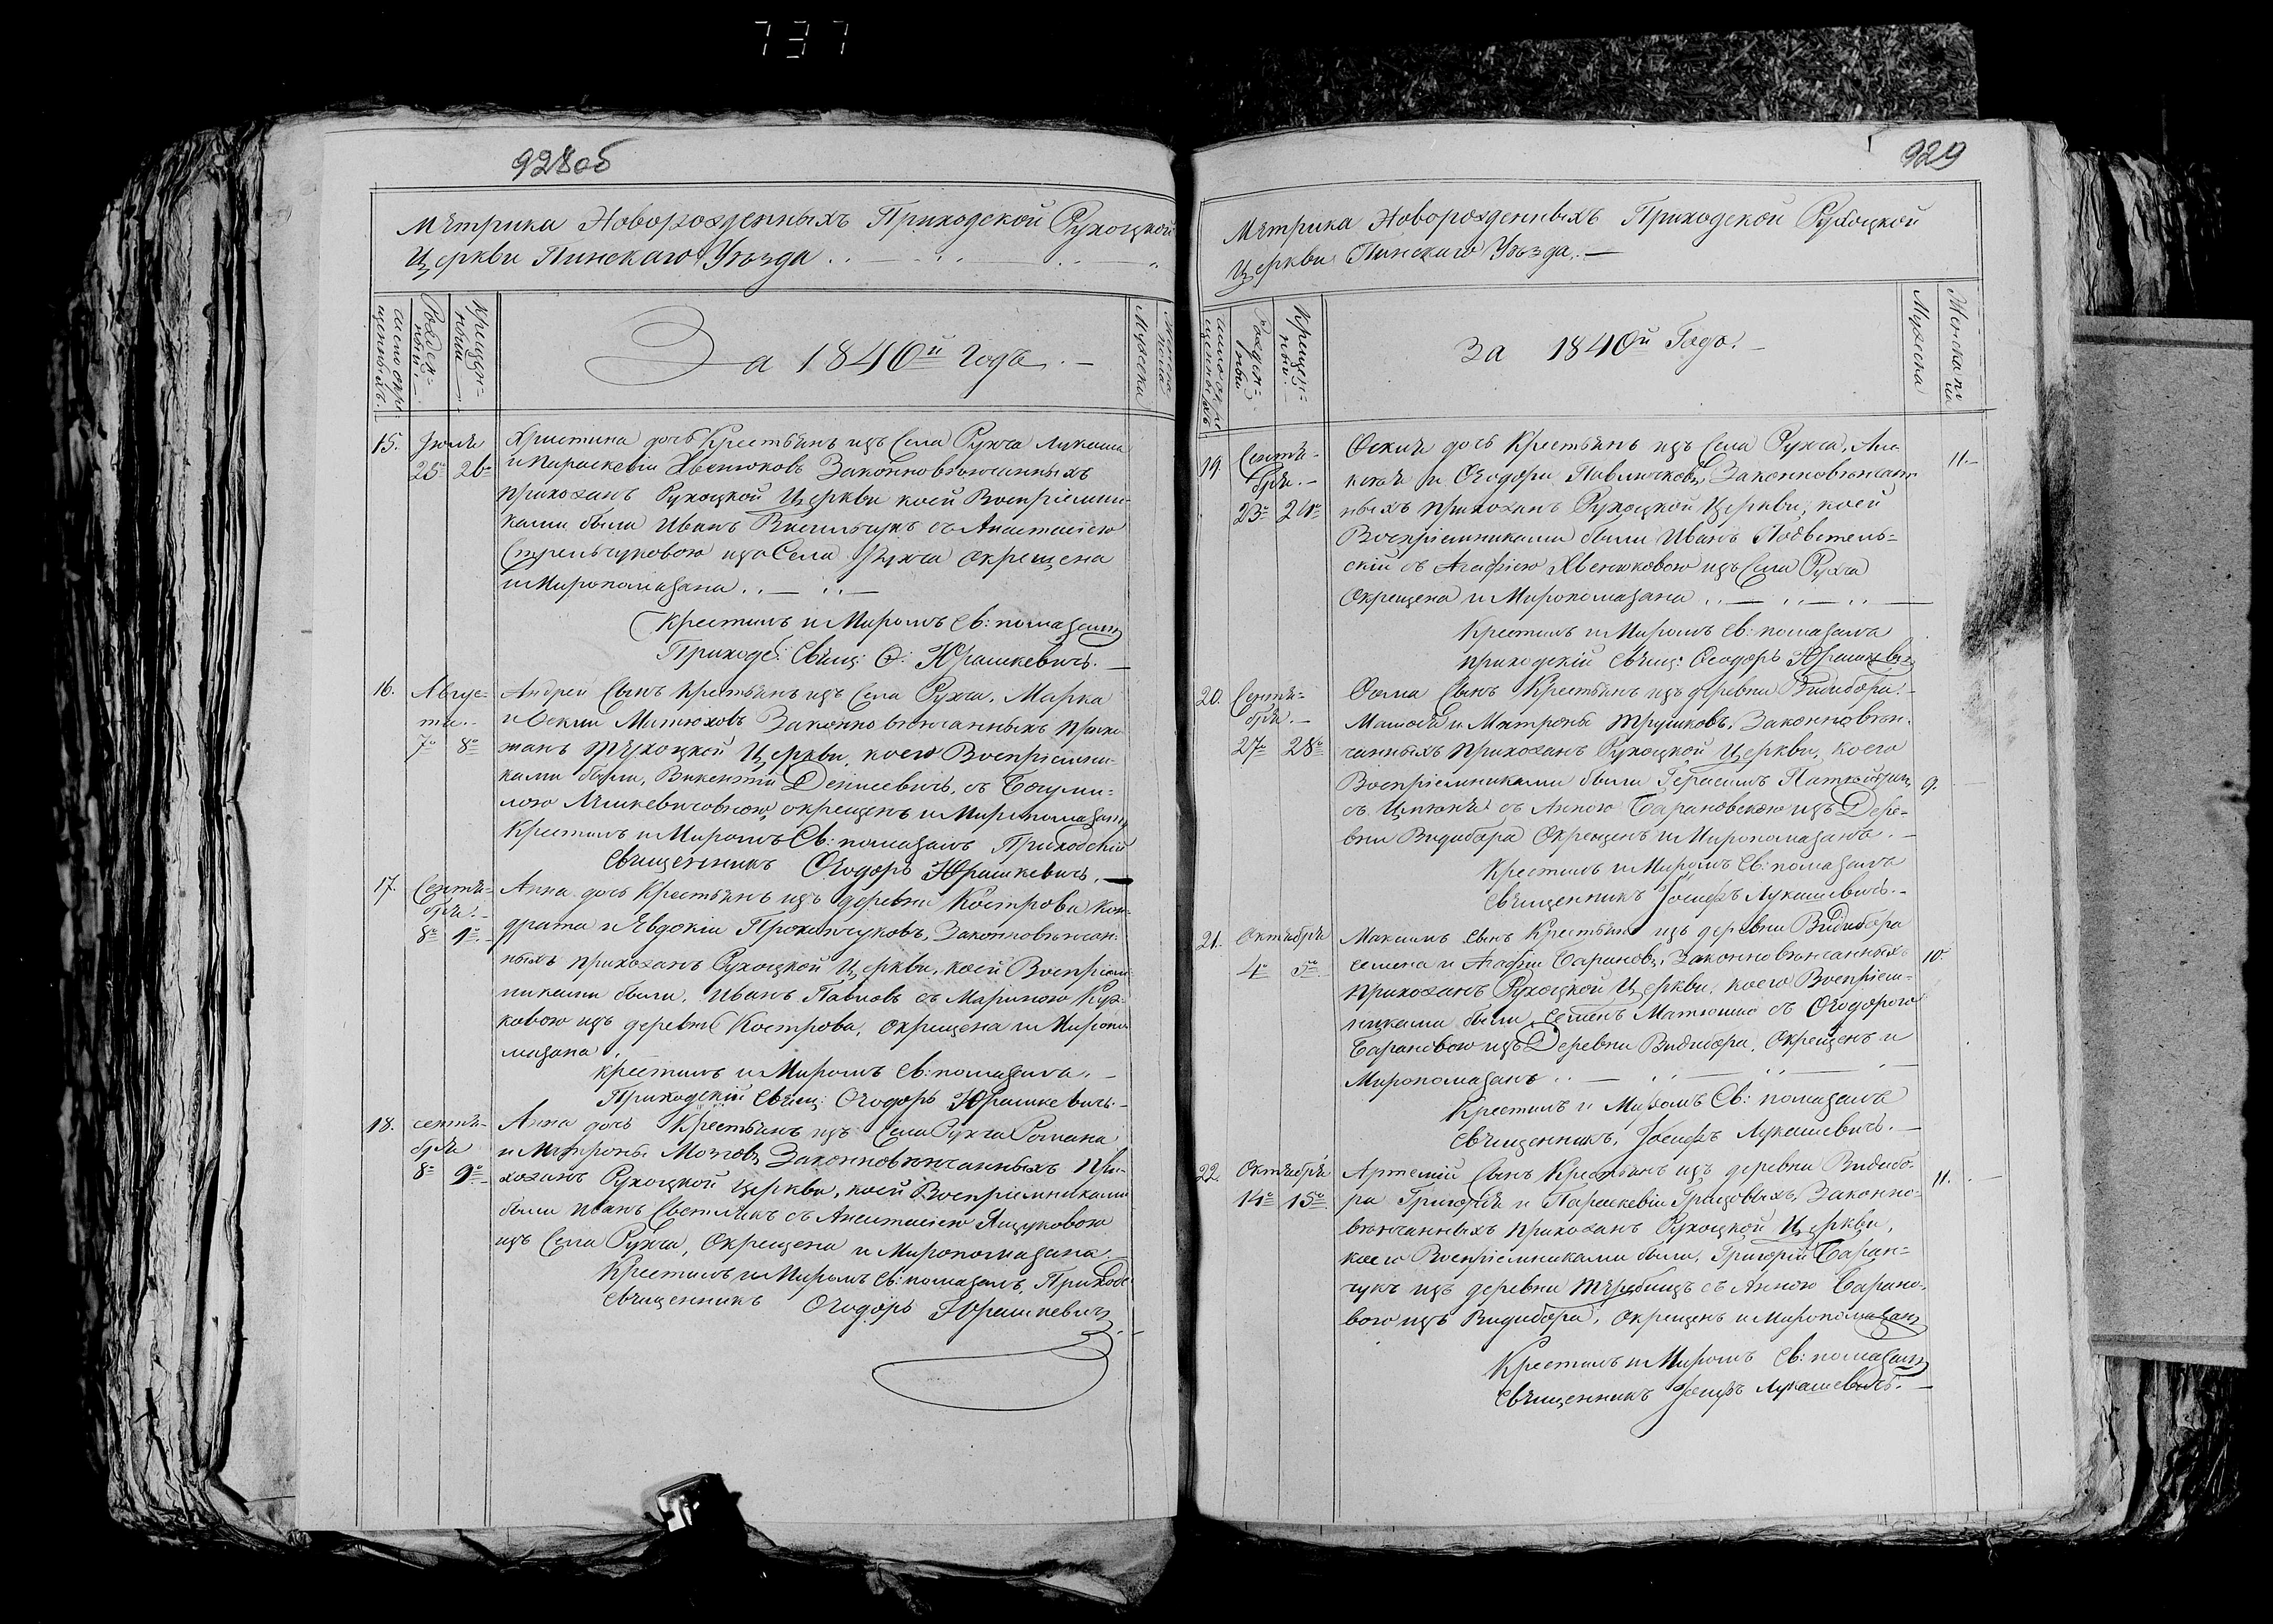 737
928об
Мѣтрика Новорожденныхъ Приходской Рухоцкой
Церкви Пинскаго Уѣзда
число окре
щенныхъ.
Рожден=
ный
Крещен=
ный
За 1840й годъ.
Мужска
Женска
пола
15.
Іюля
25 26
Христина дочь Крестьянъ изъ Села Рухча Лукаша
и Параскевіи Хвенюковъ Законновѣнчанныхъ
прихожанъ Рухоцкой Церкви коей Воспріемни-
ками были Иванъ Васильчукъ съ Анастасіею
Стрельчуковою изъ Села Рухча Окрещена
и Миропомазана
Крестилъ и Миромъ Св: помазалъ
Приход: Свящ: Ѳ: Юрашкевичь.
16.
Авгус=
та.
7 8
Андрей Сынъ Крестьянъ изъ Села Рухча, Марка
и Ѳекли Матюховъ Законновѣнчанныхъ прихо
жанъ Рухоцкой Церкви, коего Воспріемни-
ками были, Викентій Денисевичь, съ Богуми=
лою окрещенъ и Миропомазанъ
Крестилъ и Миромъ Св: помазалъ Приходскій
Священникъ Ѳеодоръ Юрашкевичь.
17.
Сентя=
бря.
8 9
Анна дочь Крестьянъ изъ деревни Кострова Кон-
драта и Евдокіи Прокопчуковъ, Законновѣнчан-
ныхъ прихожанъ Рухоцкой Церкви, коей Воспріем
никами были, Иванъ Павловъ съ Мариною
ковою изъ деревни Кострова, окрещена и Миропо
мазана
крестилъ и Миромъ Св: помазалъ.
Приходскій Свящ: Ѳеодоръ Юрашкевичь.
18.
сентя-
бря
8 9
Анна дочь Крестьянъ изъ Села Рухча Романа
и Матроны Законновѣнчанныхъ При-
хожанъ Рухоцкой Церкви, коей Воспріемниками
были Иванъ съ Анастасіею Ящуковою
изъ Села Рухча, Окрещена и Миропомазана.
Крестилъ и Миромъ Св: помазалъ, Приходс:
Священникъ Ѳеодоръ Юрашкевичь
929
Мѣтрика Новорожденныхъ Приходской Рухоцкой
Церкви Пинскаго Уѣзда.
число окре
щенныхъ
Рожден=
ный
Крещен=
ный.
За 1840й Годъ.
Мужска
Женска пола
19.
Сентя-
бря.
23 24
Ѳекла дочь Крестьянъ изъ Села Рухча,
и Ѳеодоры Павлючковъ, Законновѣнчан
ныхъ прихожанъ Рухоцкой Церкви, коей
Воспріемниками были Иванъ Подвѣтель=
скій съ Агафіею Хвенюковою изъ Села Рухча
Окрещена и Миропомазана
Крестилъ и Миромъ Св: помазалъ
приходскій Свящ: Ѳеодоръ Юрашкевичь
11.
20.
Сентя=
бря.
27 28
Ѳома Сынъ Крестьянъ изъ деревни Видибора.
и Матроны Трушковъ, Законновѣн-
чанныхъ прихожанъ Рухоцкой Церкви, коего
Воспріемниками были Герасимъ
съ съ Анною Барановскою изъ Дере-
вни Видибора Окрещенъ и Миропомазанъ.
Крестилъ и Миромъ Св: помазалъ
Священникъ Іосифъ Лукашевичь.
9.
21.
Октября
4 5
Максимъ Сынъ Крестьянъ изъ деревни Видибора
Семена и Агафіи Барановъ, Законновѣнчанныхъ
прихожанъ Рухоцкой Церкви, коего Воспріем-
никами были, Семенъ съ Ѳеодорою
Барановою изъ Деревни Видибора, Окрещенъ и
Миропомазанъ
Крестилъ и Миромъ Св: помазалъ
Священникъ, Іосифъ Лукашевичь.
10
22.
Октября
14 15
Артемій Сынъ Крестьянъ изъ деревни Видибо-
ра Григорія и Параскевіи Грицовыхъ, Законно-
вѣнчанныхъ прихожанъ Рухоцкой Церкви,
коего Воспріемниками были, Григорій Баран-
чукъ изъ деревни Теребищъ съ Анною Барано-
вою изъ Видибора, Окрещенъ и Миропомазанъ
Крестилъ и Миромъ Св: помазалъ
Священникъ Іосифъ Лукашевичь.
11.